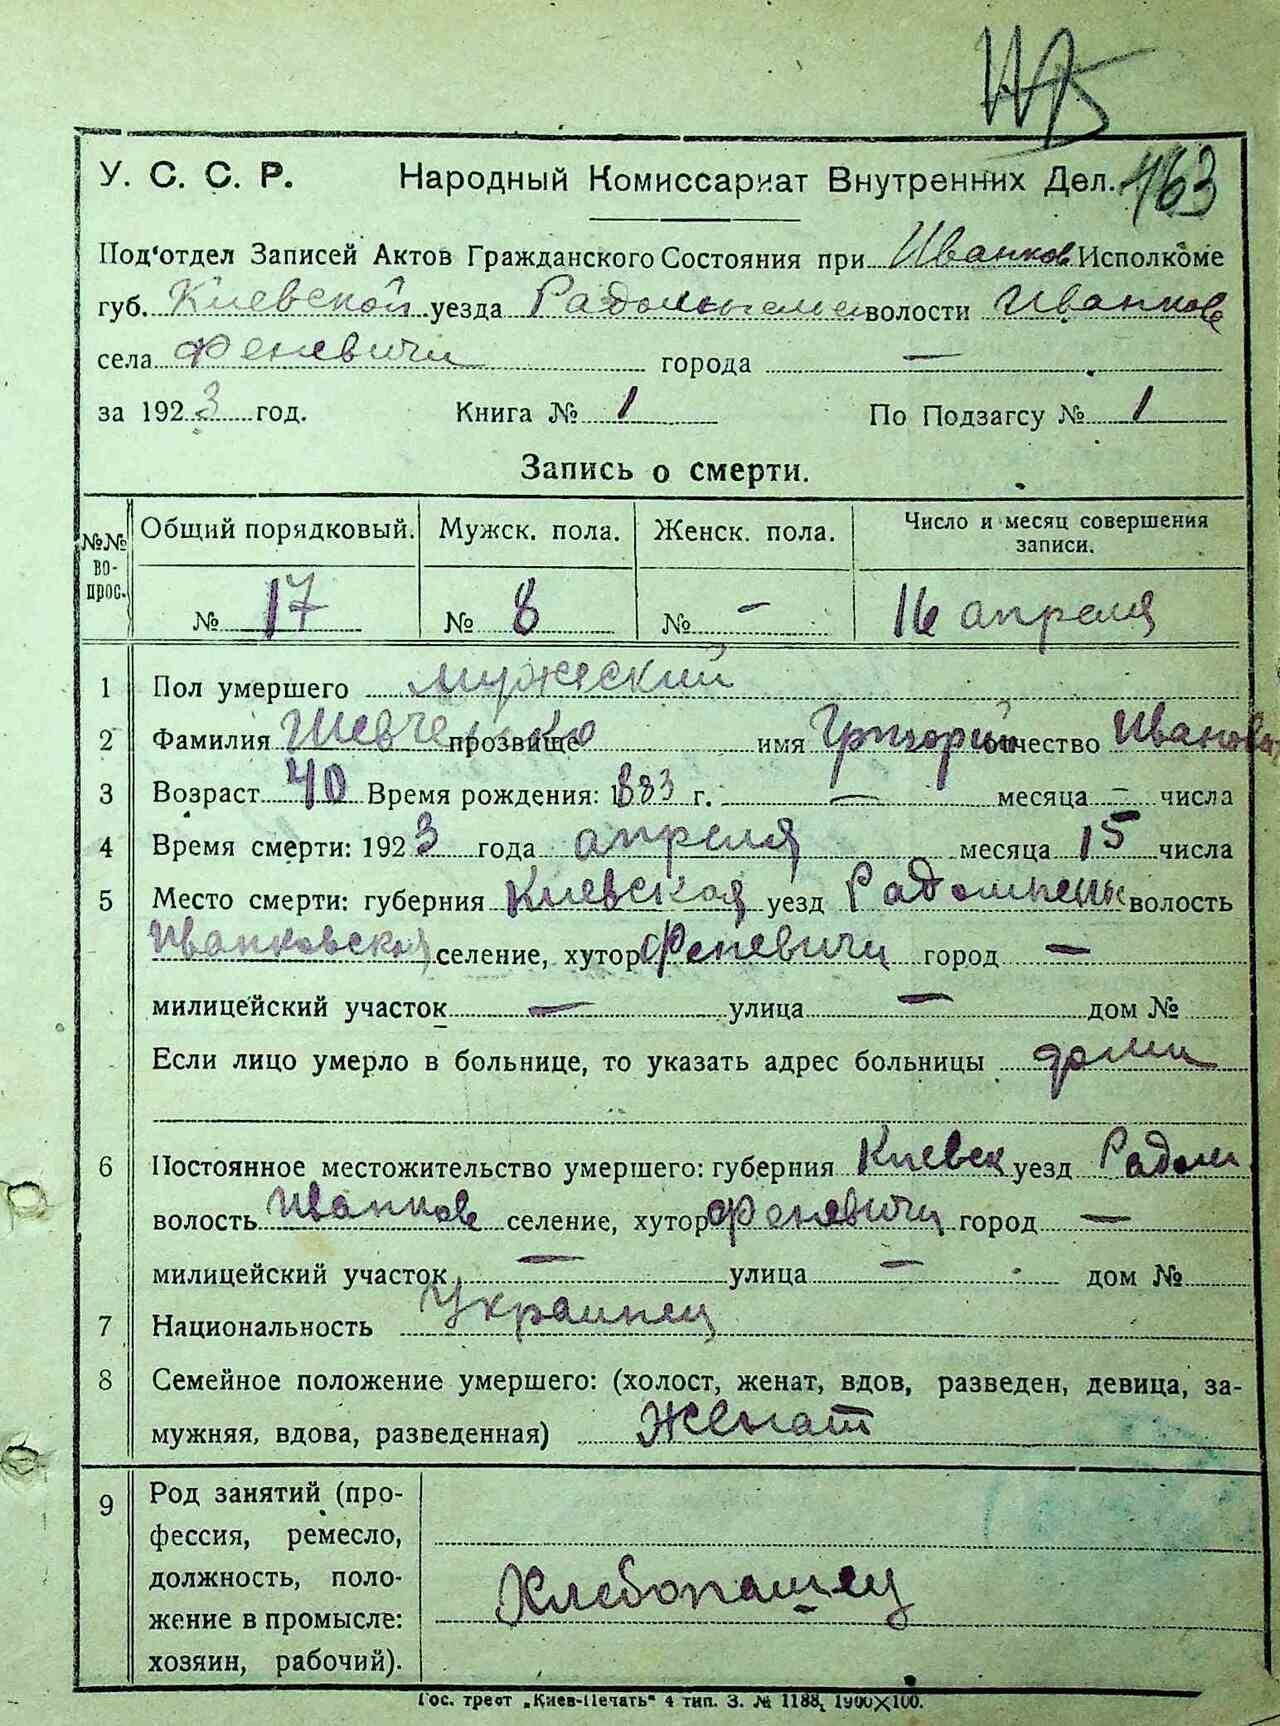 У. С. С. Р. Народный Комиссариат Внутренних Дел. 463
Под'отдел Записей Актов Гражданского Состояния при Иванков Исполкоме
губ. Киевской уезда волости Иванков
села Феневичи города —
за 1923 год. Книга № 1 По Подзагсу № 1
Запись о смерти.
№№ вопрос. Общий порядковый. Мужск. пола. Женск. пола. Число и месяц совершения записи.
№ 17 № 8 № — 16 апреля
1 Пол умершего мужеский
2 Фамилия Шевченко прозвище имя Григорий отчество Иванов
3 Возраст 40 Время рождения: 1883 г. — месяца — числа
4 Время смерти: 1923 года апреля месяца 15 числа
5 Место смерти: губерния Киевская уезд волость
Иванковская селение, хутор Феневичи город —
милицейский участок — улица — дом №
Если лицо умерло в больнице, то указать адрес больницы дома
6 Постоянное местожительство умершего: губерния Киевск уезд Радом
волость Иванков селение, хутор Феневичи город —
милицейский участок — улица — дом №
7 Национальность Украинец
8 Семейное положение умершего: (холост, женат, вдов, разведен, девица, за-
мужняя, вдова, разведенная) Женат
9 Род занятий (про-
фессия, ремесло,
должность, поло-
жение в промысле:
хозяин, рабочий).
Хлебопашец
Гос. трест „Киев-Печать" 4 тип. З. № 1188, 1900×100.